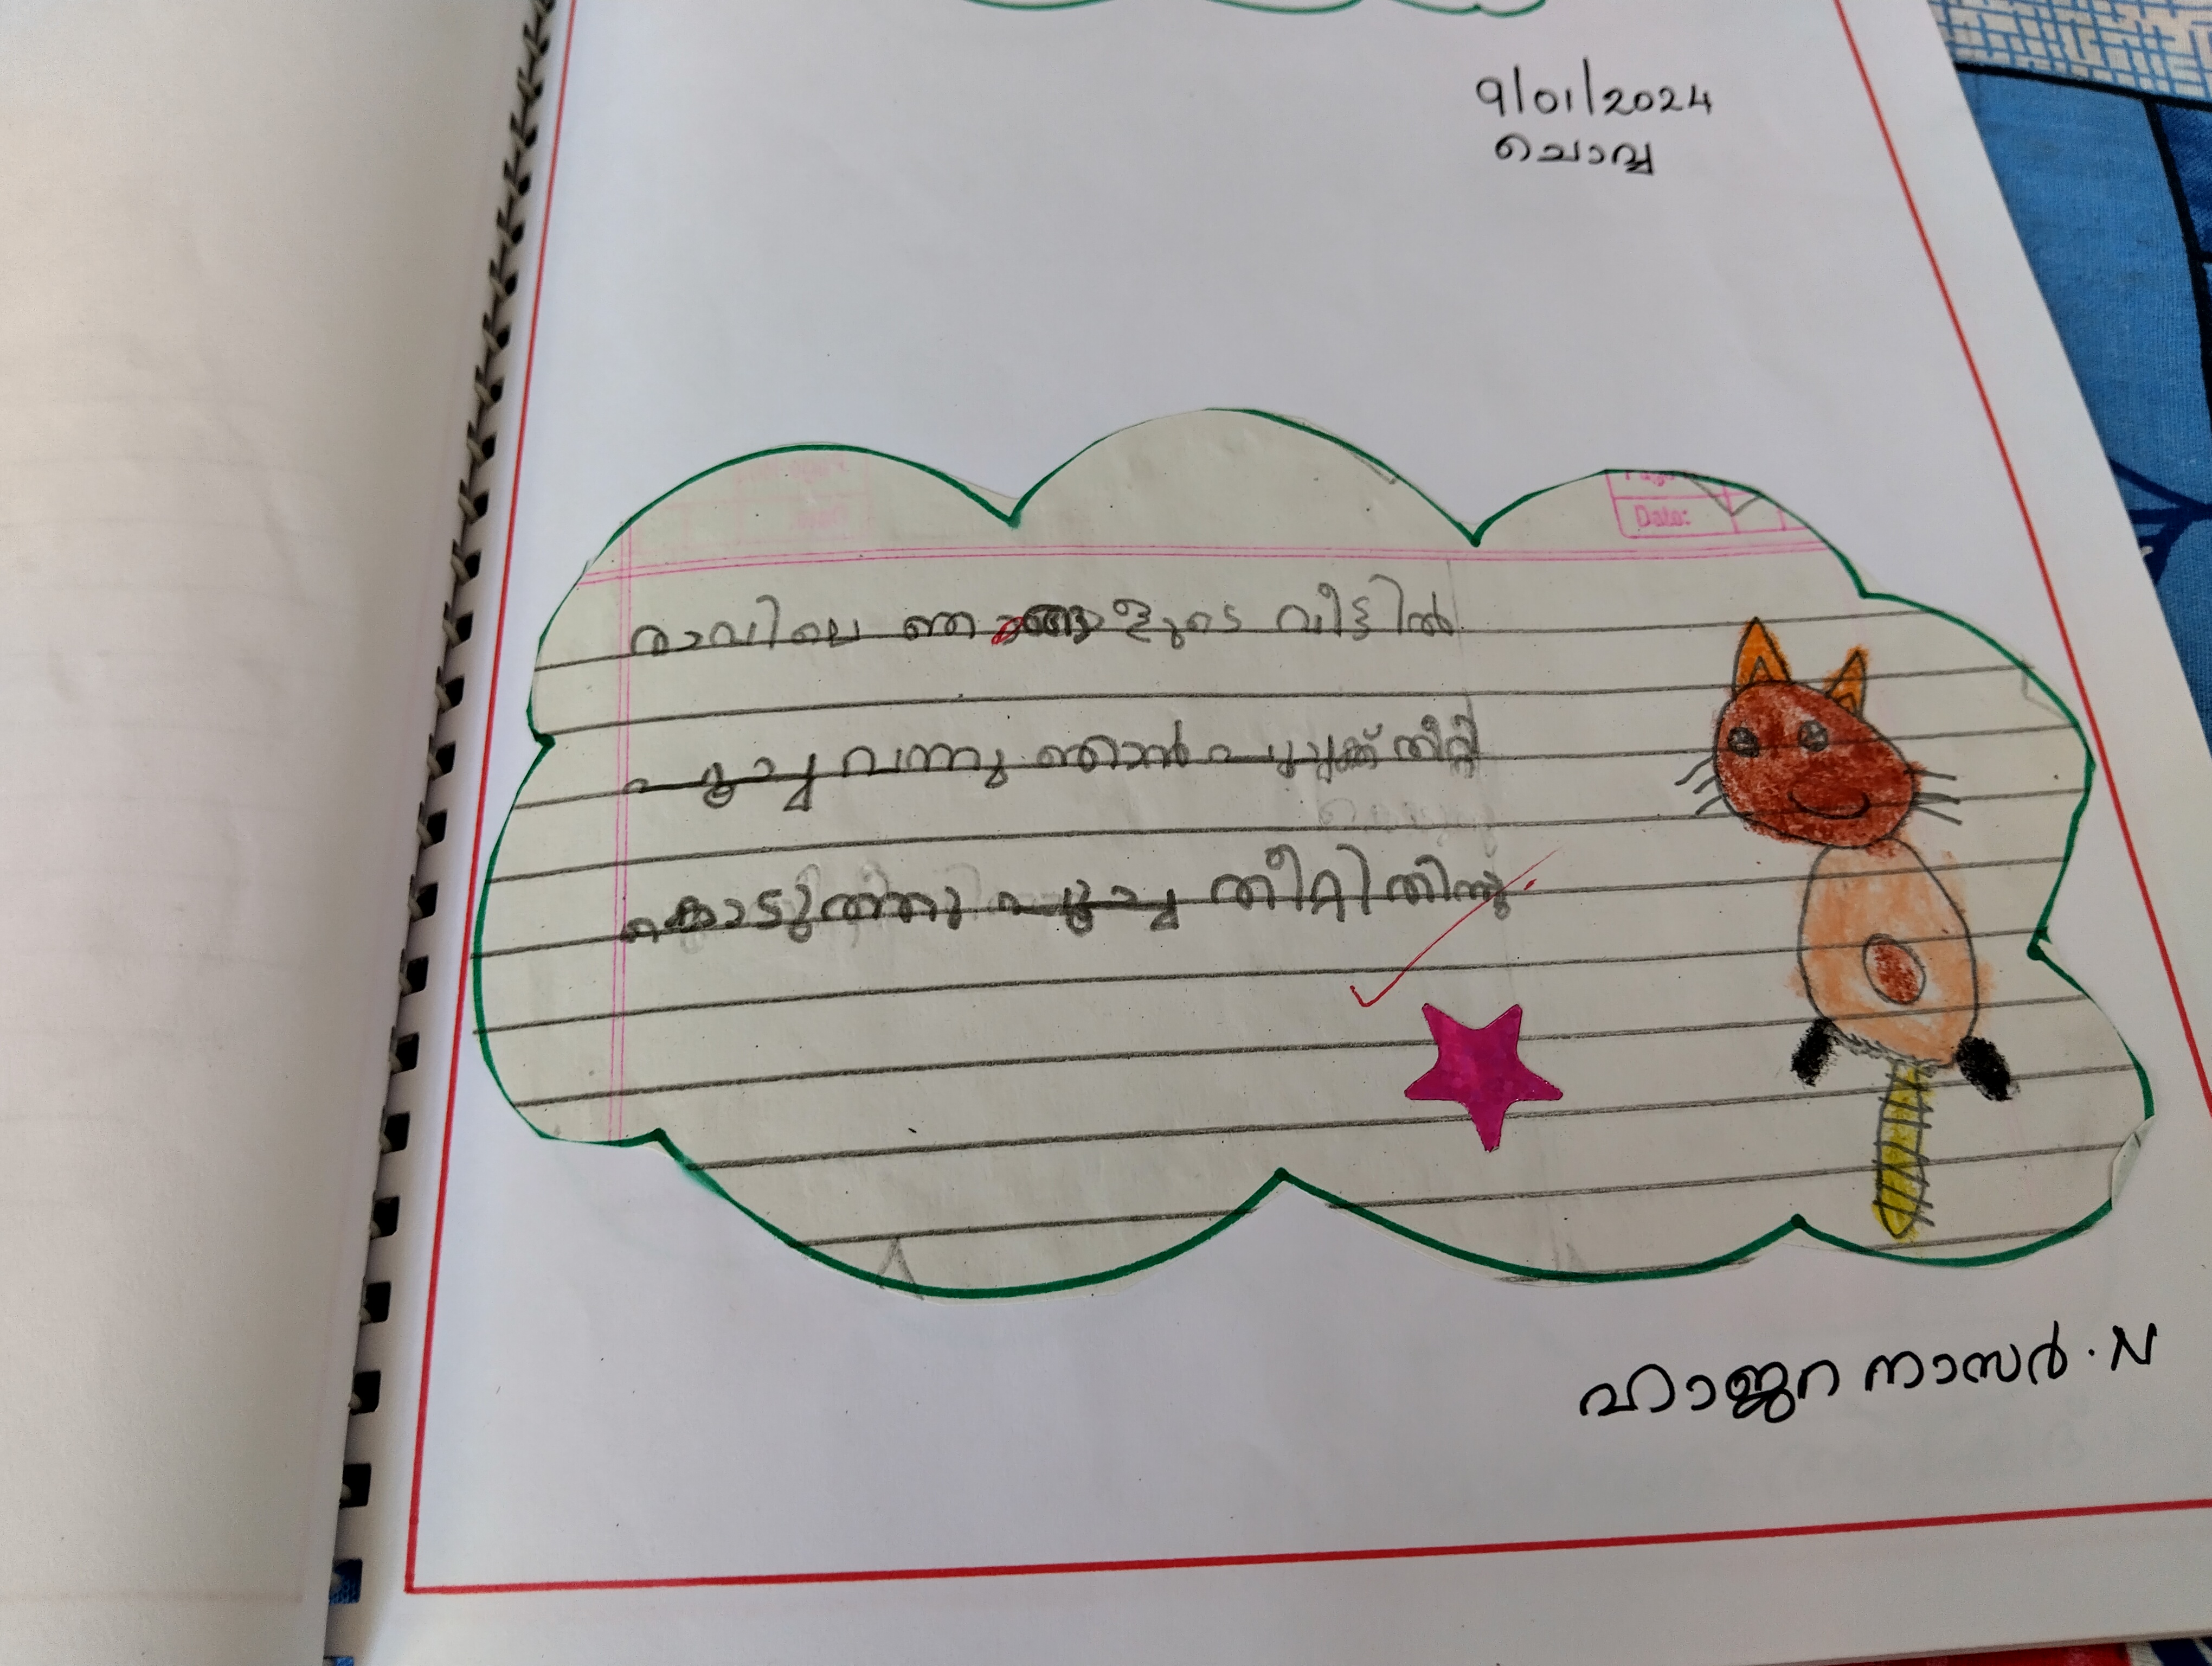 9/01/2024
ചൊവ്വ
Date:
രാവിലെ ഞങ്ങളുടെ വീട്ടിൽ
പൂച്ച വന്നു ഞാൻ പൂച്ചക്ക് തീറ്റി
കൊടുത്തു പൂച്ച തീറ്റി തിന്നു.
ഹാജറ നാസർ. N